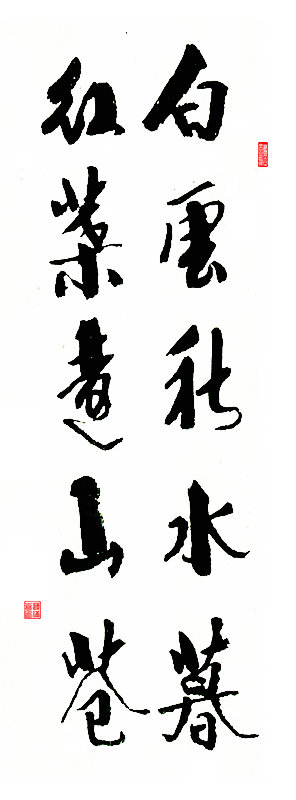 白雲秋水暮
紅葉遠山蒼